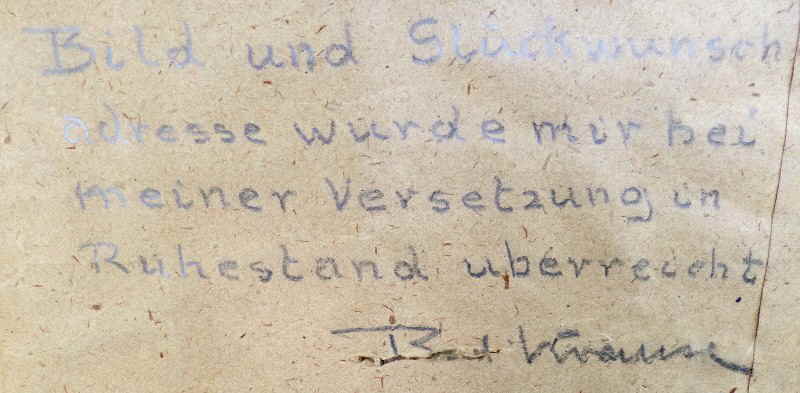 Bild und Glückwunsch
adresse wurde mir bei
meiner Versetzung in
Ruhestand überreicht
Krause